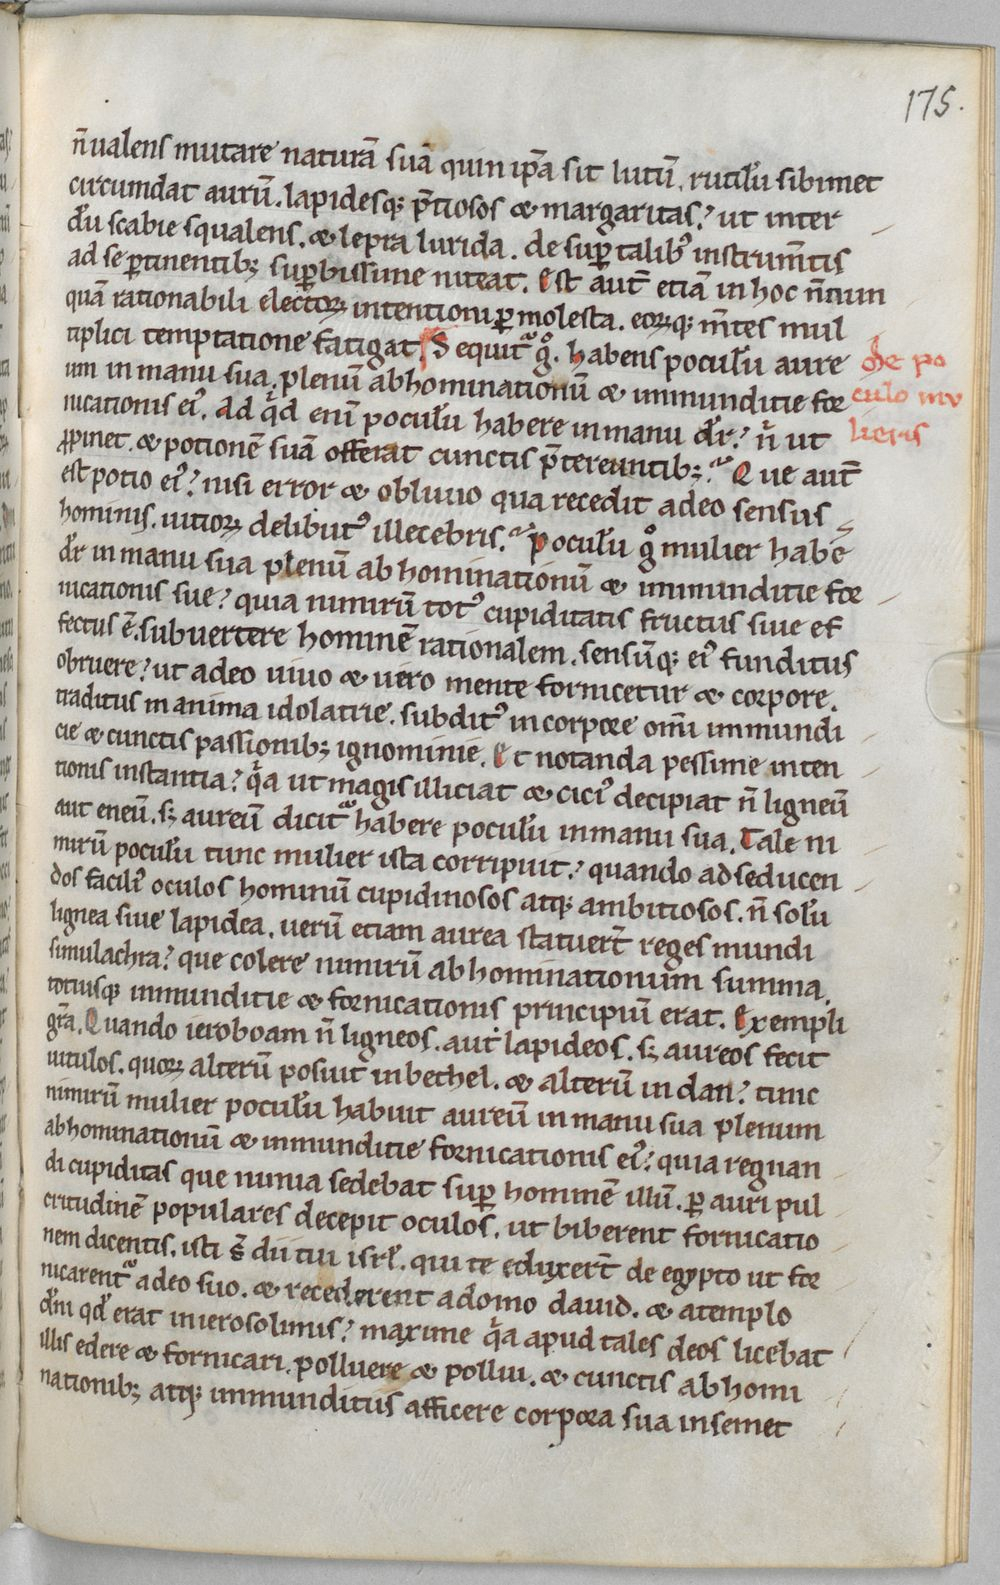 175.
n̄ ualens mutare naturā suā quin ip̄a sit lutū. rutilū sibimet
circumdat aurū. lapidesq; p̄tiosos & margaritas? ut inter
dū scabie squalens. & lepra lurida. de sup talib; instrum̄tis
ad se ptinentib; supbissime niteat. Est aut̄ etiā in hoc n̄ciun
quā rationabili electoꝝ intentioni pmolesta. eoꝝq; m̄tes mul
tiplici temptatione fatigat. Sequit̄ g°. habens poculū aure
um in manu sua. plenū abhominationū & immunditie for
nicationis eiꝰ. Ad q̇d enī poculū habere in manu dr̄? n̄ ut
ꝓpinet. & potionē suā offerat cunctis p̄tereuntib;. Que aut̄
est potio eiꝰ? nisi error & obliuio qua recedit a deo sensus
hominis. uitioꝝ delibutꝰ illecebris. Poculū g° mulier habē
dr̄ in manu sua plenū abhominationū & immunditie for
nicationis sue? quia nimirū totꝰ cupiditatis fructus siue ef
fectus ē. subuertere hominē rationalem. sensūq; eiꝰ funditus
obruere? ut a deo uiuo & uero mente fornicetur & corpore.
traditus in anima idolatrie. subditꝰ in corpore om̄i immundi
cie & cunctis passionib; ignominie. Et notanda pessime inten
tionis instantia? q̇a ut magis illiciat & ciciꝰ decipiat n̄ ligneū
aut eneū. s; aureū dicit̄ habere poculū in manu sua. Tale ni
mirū poculū tunc mulier ista corripuit? quando ad seducen
dos faciliꝰ oculos hominū cupidinosos atq; ambitiosos. n̄ solū
lignea siue lapidea. uerū etiam aurea statuert̄ reges mundi
simulachra? que colere nimirū abhominationum summa.
totiusq; immunditie & fornicationis principiū erat. Exempli
gr̄a. Quando ieroboam n̄ ligneos. aut lapideos. s; aureos fecit
uitulos. quoꝝ alterū posuit in bethel. & alterū in dan? tunc
nimirū mulier poculū habuit aureū in manu sua plenum
abhominationū & immunditie fornicationis eiꝰ? quia regnan
di cupiditas que nimia sedebat sup hominē illū. p auri pul
critudinē populares decepit oculos. ut biberent fornicatio
nem dicentis. isti s̄ dii tui isrl̄. qui te eduxert̄ de egypto ut for
nicarent̄ a deo suo. & recederent a domo dauid. & a templo
dn̄i qd̄ erat in ierosolimis? maxime q̇a apud tales deos licebat
illis edere & fornicari. polluere & pollui. & cunctis abhomi
nationib; atq; immunditiis afficere corpora sua in semet
De po
culo mu
lieris